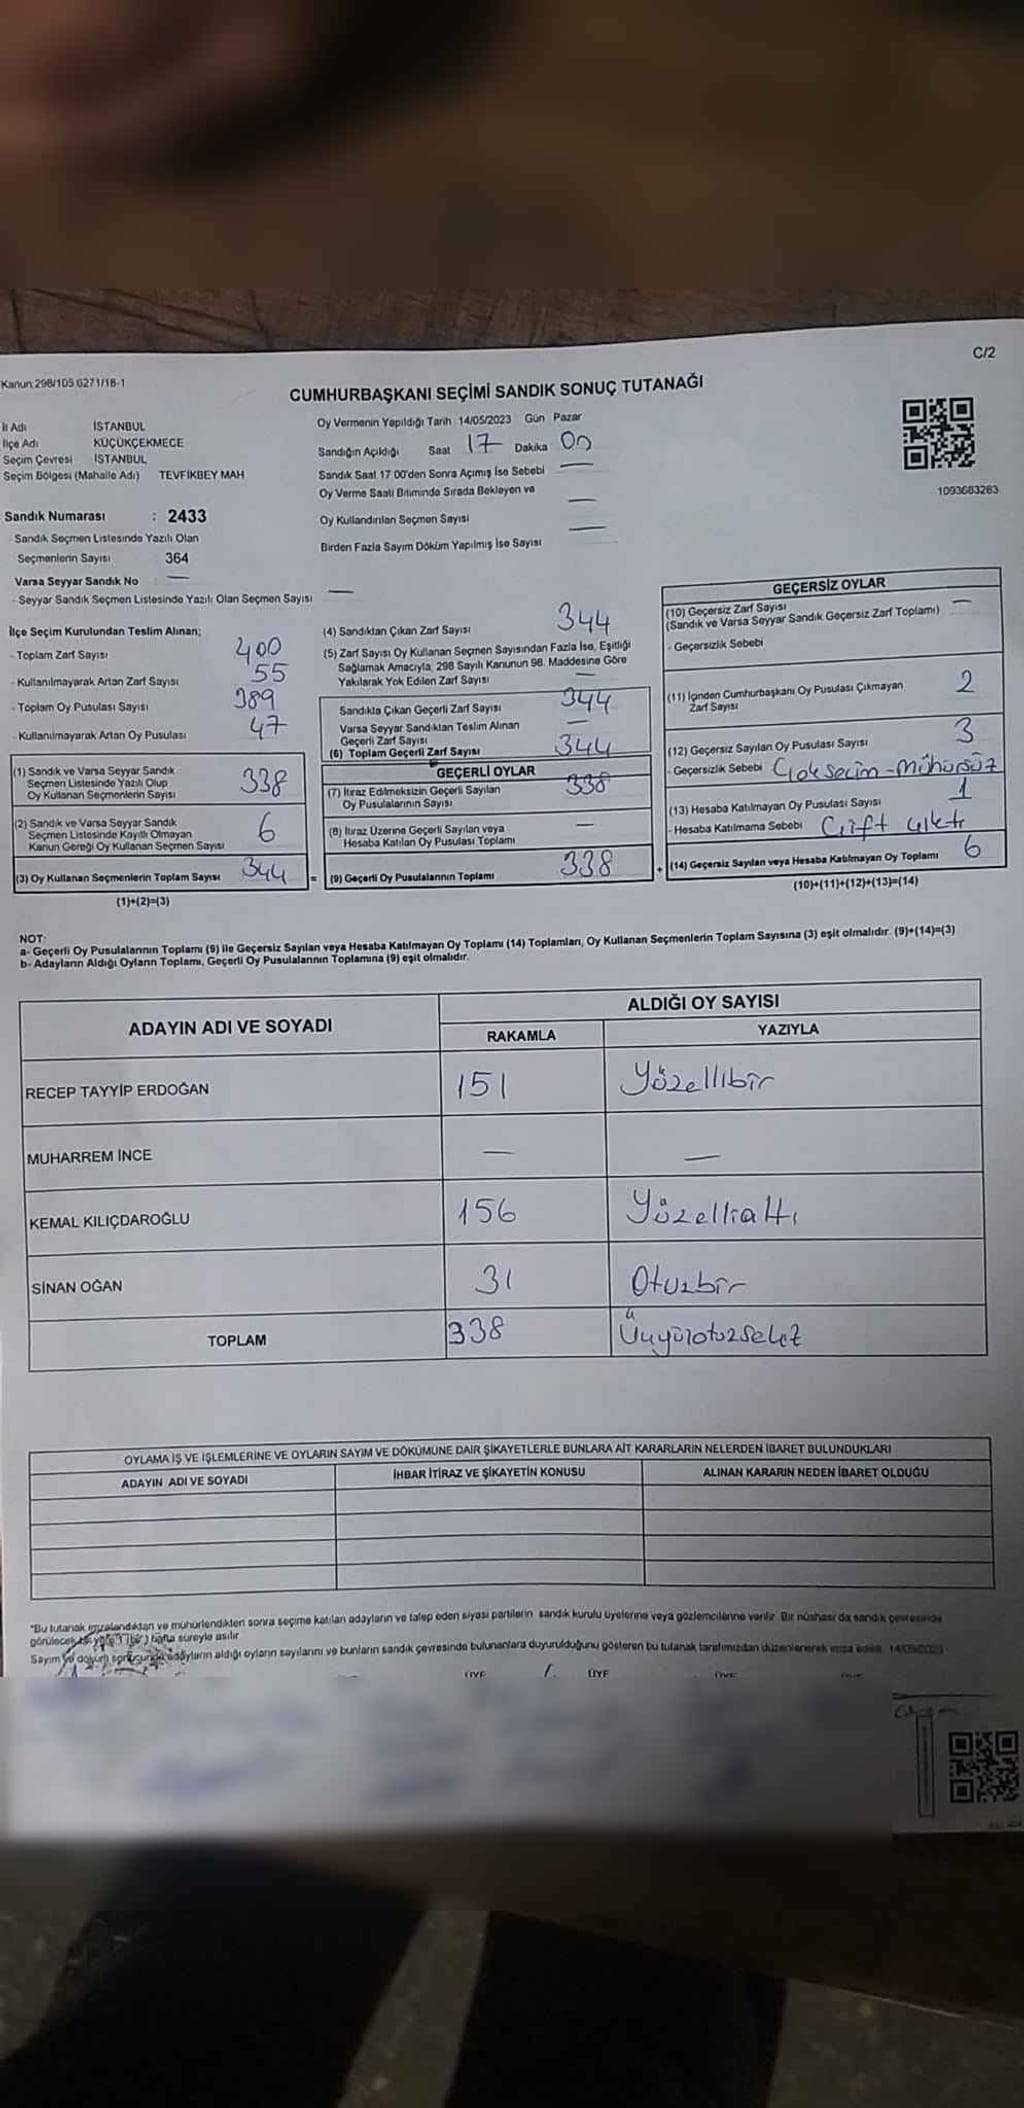 C/2
Kanun:298/105,6271/18-1
CUMHURBAŞKANI SEÇİMİ SANDIK SONUÇ TUTANAĞI
İl Adı İSTANBUL
İlçe Adı KÜÇÜKÇEKMECE
Seçim Çevresi İSTANBUL
Seçim Bölgesi (Mahalle Adı) TEVFİKBEY MAH
Oy Vermenin Yapıldığı Tarih 14/05/2023 Gün Pazar
Sandığın Açıldığı Saat 17 Dakika 00
Sandık Saat 17.00'den Sonra Açımış İse Sebebi —
Oy Verme Saati Bitiminde Sırada Bekleyen ve
Oy Kullandırılan Seçmen Sayısı —
Birden Fazla Sayım Döküm Yapılmış İse Sayısı —
1093683263
Sandık Numarası : 2433
Sandık Seçmen Listesinde Yazılı Olan
Seçmenlerin Sayısı 364
Varsa Seyyar Sandık No —
- Seyyar Sandık Seçmen Listesinde Yazılı Olan Seçmen Sayısı —
İlçe Seçim Kurulundan Teslim Alınan;
- Toplam Zarf Sayısı 400
- Kullanılmayarak Artan Zarf Sayısı 55
- Toplam Oy Pusulası Sayısı 389
- Kullanılmayarak Artan Oy Pusulası 47
(1) Sandık ve Varsa Seyyar Sandık
Seçmen Listesinde Yazılı Olup
Oy Kullanan Seçmenlerin Sayısı 338
(2) Sandık ve Varsa Seyyar Sandık
Seçmen Listesinde Kayıtlı Olmayan
Kanun Gereği Oy Kullanan Seçmen Sayısı 6
(3) Oy Kullanan Seçmenlerin Toplam Sayısı 344 =
(1)+(2)=(3)
(4) Sandıktan Çıkan Zarf Sayısı 344
(5) Zarf Sayısı Oy Kullanan Seçmen Sayısından Fazla İse, Eşitliği
Sağlamak Amacıyla, 298 Sayılı Kanunun 98. Maddesine Göre
Yakılarak Yok Edilen Zarf Sayısı —
Sandıkta Çıkan Geçerli Zarf Sayısı 344
Varsa Seyyar Sandıktan Teslim Alınan
Geçerli Zarf Sayısı —
(6) Toplam Geçerli Zarf Sayısı 344
GEÇERLİ OYLAR
(7) İtiraz Edilmeksizin Geçerli Sayılan
Oy Pusulalarının Sayısı 338
(8) İtiraz Üzerine Geçerli Sayılan veya
Hesaba Katılan Oy Pusulası Toplamı —
(9) Geçerli Oy Pusulalarının Toplamı 338 +
GEÇERSİZ OYLAR
(10) Geçersiz Zarf Sayısı —
(Sandık ve Varsa Seyyar Sandık Geçersiz Zarf Toplamı)
- Geçersizlik Sebebi
(11) İçinden Cumhurbaşkanı Oy Pusulası Çıkmayan
Zarf Sayısı 2
(12) Geçersiz Sayılan Oy Pusulası Sayısı 3
- Geçersizlik Sebebi Çok seçim - Mühürsüz
(13) Hesaba Katılmayan Oy Pusulası Sayısı 1
- Hesaba Katılmama Sebebi Çift çıktı
(14) Geçersiz Sayılan veya Hesaba Katılmayan Oy Toplamı 6
(10)+(11)+(12)+(13)=(14)
NOT:
a- Geçerli Oy Pusulalarının Toplamı (9) ile Geçersiz Sayılan veya Hesaba Katılmayan Oy Toplamı (14) Toplamları, Oy Kullanan Seçmenlerin Toplam Sayısına (3) eşit olmalıdır. (9)+(14)=(3)
b- Adayların Aldığı Oyların Toplamı, Geçerli Oy Pusulalarının Toplamına (9) eşit olmalıdır.
ADAYIN ADI VE SOYADI ALDIĞI OY SAYISI
RAKAMLA YAZIYLA
RECEP TAYYİP ERDOĞAN 151 Yüzellibir
MUHARREM İNCE — —
KEMAL KILIÇDAROĞLU 156 Yüzellialtı
SİNAN OĞAN 31 Otuzbir
TOPLAM 338 Üçyüzotuzsekiz
OYLAMA İŞ VE İŞLEMLERİNE VE OYLARIN SAYIM VE DÖKÜMÜNE DAİR ŞİKAYETLERLE BUNLARA AİT KARARLARIN NELERDEN İBARET BULUNDUKLARI
ADAYIN ADI VE SOYADI İHBAR İTİRAZ VE ŞİKAYETİN KONUSU ALINAN KARARIN NEDEN İBARET OLDUĞU
"Bu tutanak imzalandıktan ve mühürlendikten sonra seçime katılan adayların ve talep eden siyasi partilerin sandık kurulu üyelerine veya gözlemcilerine verilir. Bir nüshası da sandık çevresinde
görülecek bir yere 1 (bir) hafta süreyle asılır
Sayım ve döküm sonucunda adayların aldığı oyların sayılarını ve bunların sandık çevresinde bulunanlara duyurulduğunu gösteren bu tutanak tarafımızdan düzenlenerek imza edildi. 14/05/2023
ÜYE ÜYE ÜYE